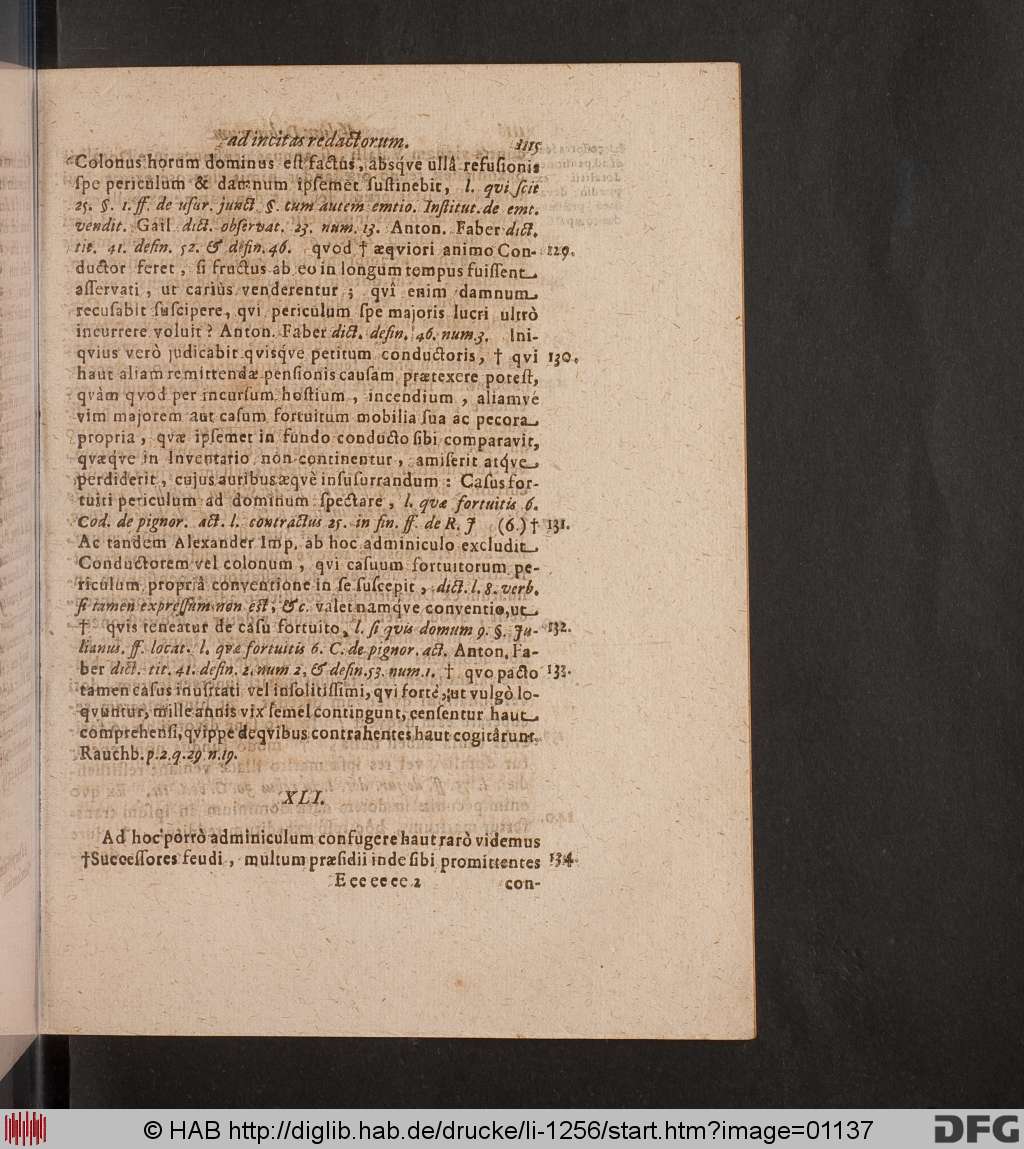 ad incitas redactorum. 1115
Colonus horum dominus est factus, absqve ullâ refusionis
spe periculum & damnum ipsemet sustinebit, l. qui scit
25. §. 1. ff. de usur. junct. §. cum autem emtio. Institut. de emt.
vendit. Gail dict. observat. 23. num. 13. Anton. Faber dict.
tit. 41. defin. 52. & defin. 46. qvod † æqviori animo Con- 129.
ductor feret, si fructus ab eo in longum tempus fuissent
asservati, ut cariùs venderentur; qvî enim damnum
recusabit suscipere, qvi periculum spe majoris lucri ultrò
incurrere voluit? Anton. Faber dict. defin. 46. num. 3. Ini-
qvius verò judicabit qvisqve petitum conductoris, † qvi 130.
haut aliam remittendæ pensionis causam prætexere potest,
qvàm qvod per incursum hostium, incendium, aliamvé
vim majorem aut casum fortuitum mobilia sua ac pecora
propria, qvæ ipsemet in fundo conducto sibi comparavit,
qvæqve in Inventario non continentur, amiserit atqve
perdiderit, cujus auribus æqvè insusurrandum: Casus for-
tuiti periculum ad dominum spectare, l. quæ fortuitis 6.
Cod. de pignor. act. l. contractus 25. in fin. ff. de R. J (6.) † 131.
Ac tandem Alexander Imp. ab hoc adminiculo excludit
Conductorem vel colonum, qvi casuum fortuitorum pe-
riculum propriâ conventione in se suscepit, dict. l. 8. verb.
si tamen expressum non est, &c. valet namqve conventio, ut
† qvis teneatur de casu fortuito, l. si qvis domum 9. §. Ju- 132.
lianus. ff. locat. l. qvæ fortuitis 6. C. de pignor. act. Anton. Fa-
ber dict. tit. 41. defin. 2. num 2, & defin. 53. num. 1. † qvo pacto 133.
tamen casus inusitati vel insolitissimi, qvi fortè, ut vulgò lo-
qvuntur, mille annis vix semel contingunt, censentur haut
comprehensi, qvippe de qvibus contrahentes haut cogitârunt.
Rauchb. p. 2. q. 29 n. 19.
XLI.
Ad hoc porrò adminiculum confugere haut rarò videmus
†Successores feudi, multum præsidii inde sibi promittentes 134.
E ee ee ee 2 con-
© HAB http://diglib.hab.de/drucke/li-1256/start.htm?image=01137
DFG